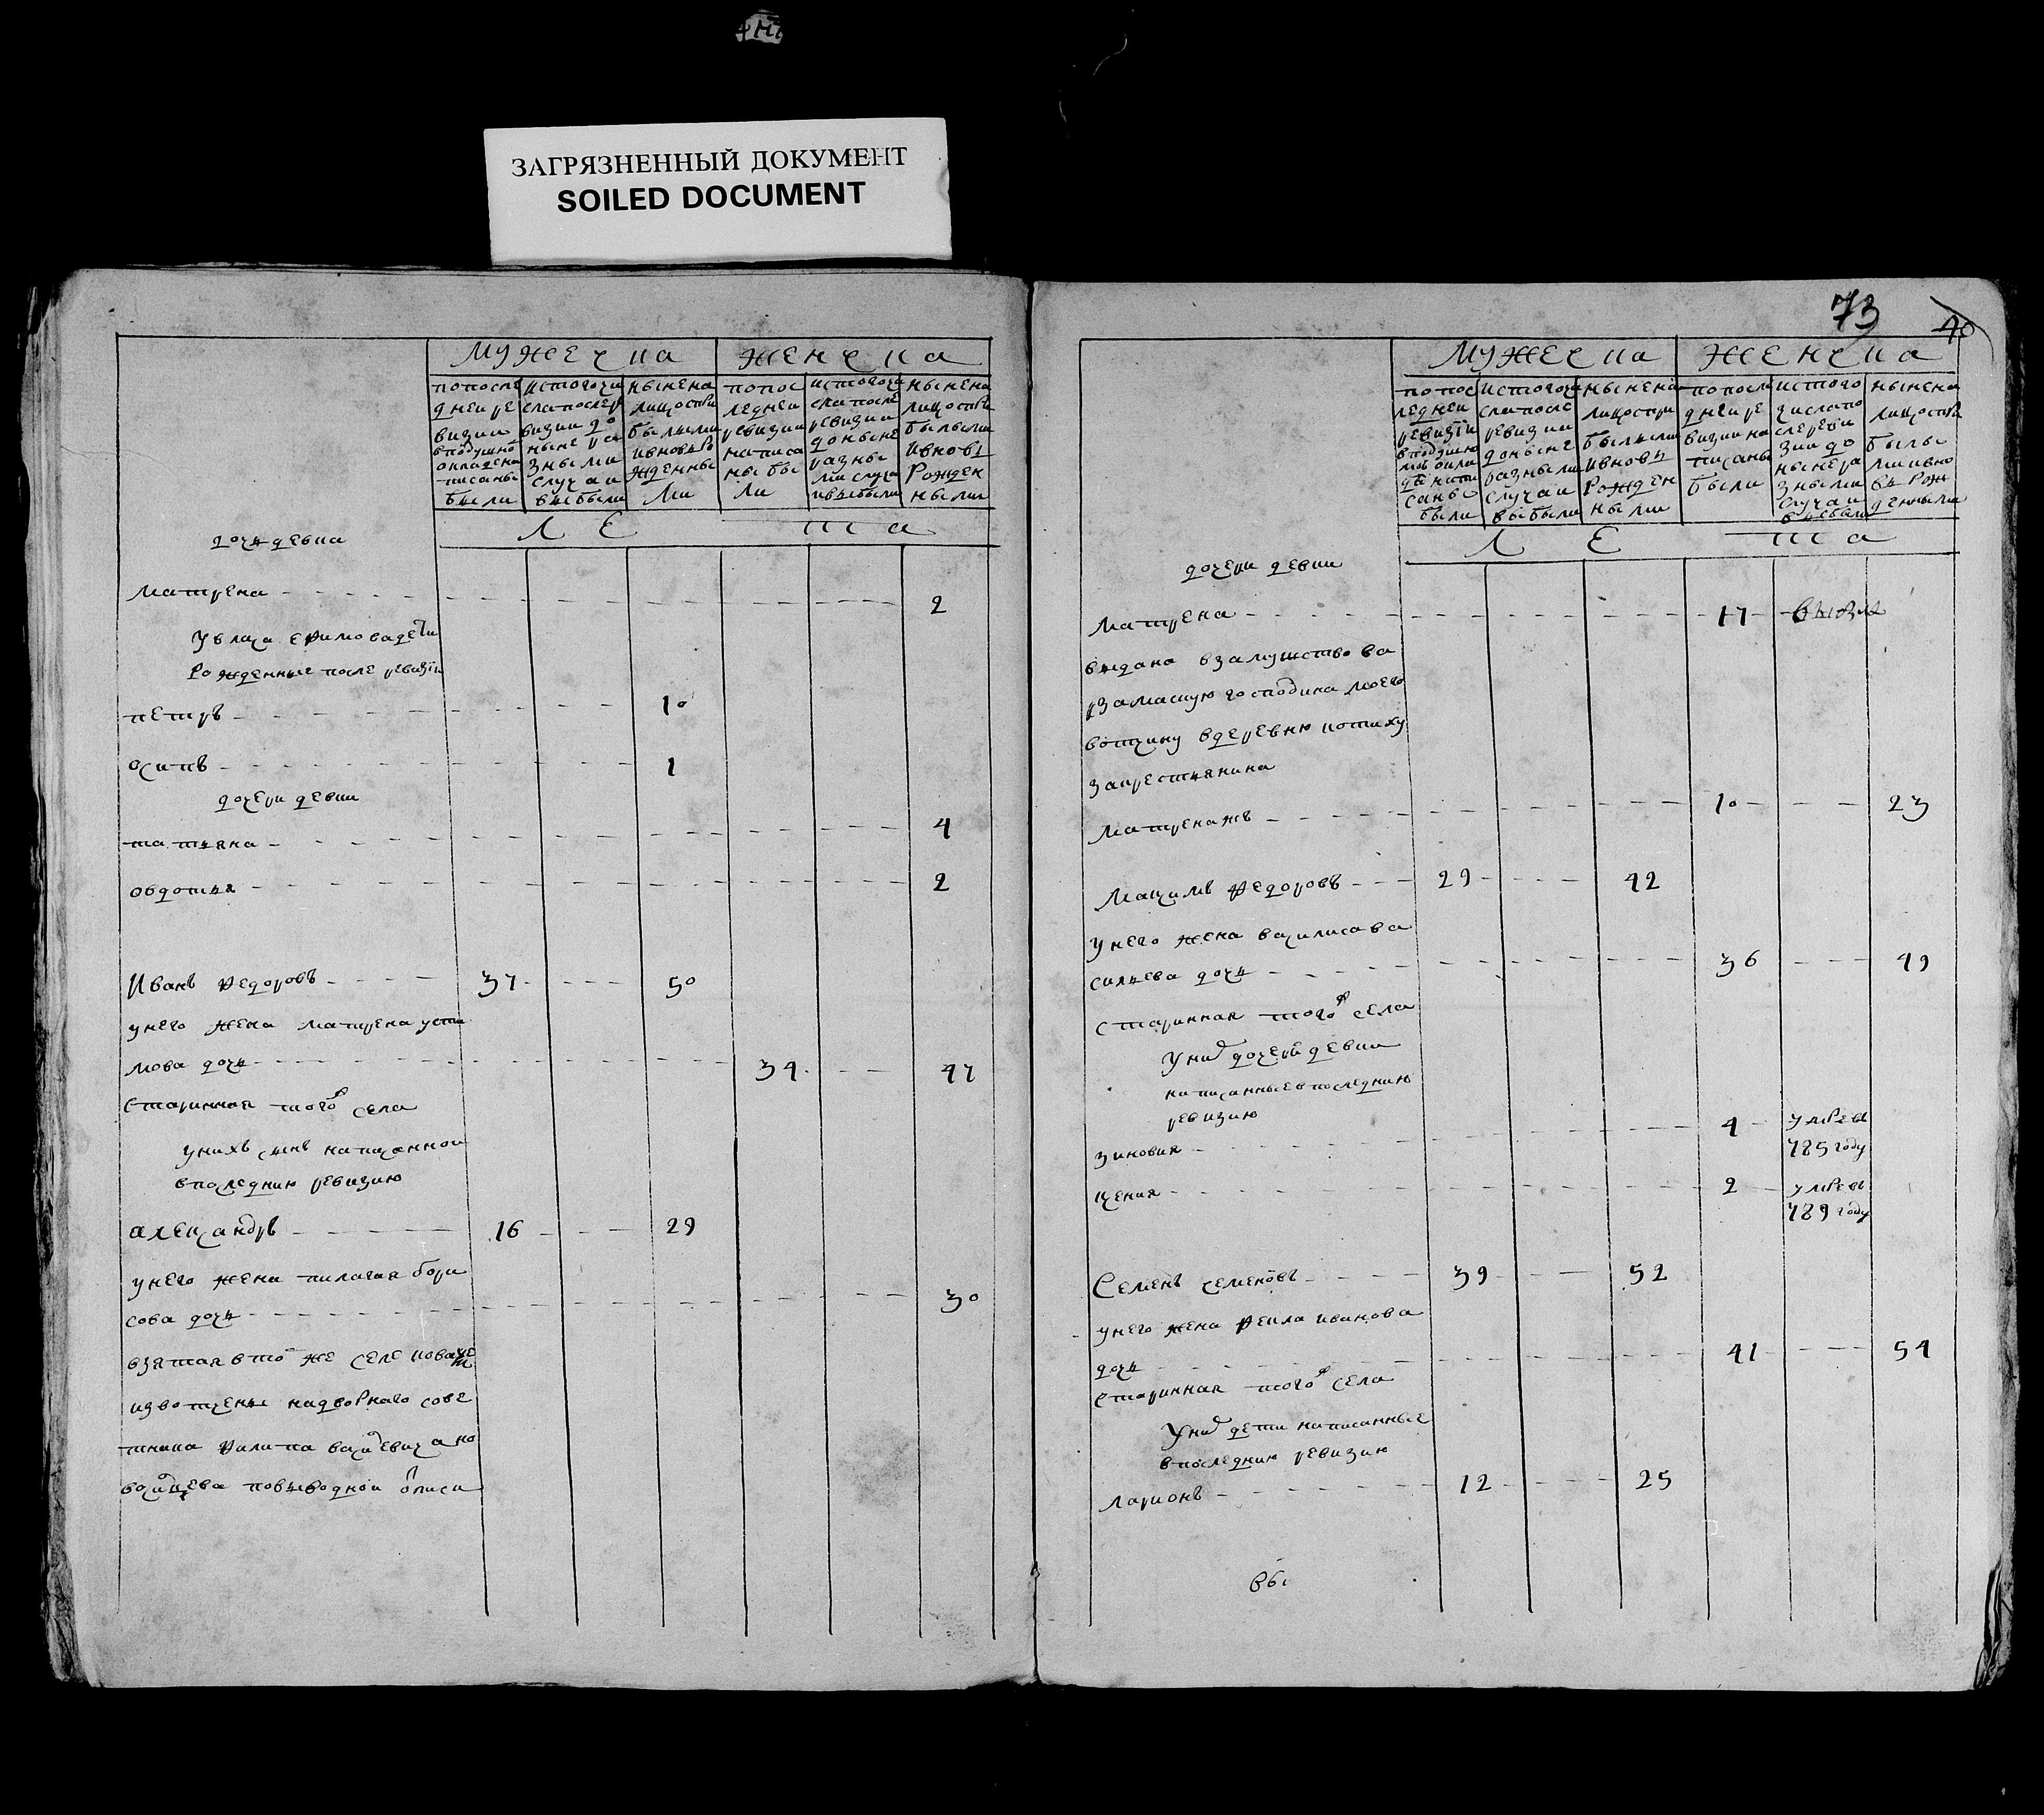 ЗАГРЯЗНЕННЫЙ ДОКУМЕНТ
SOILED DOCUMENT
мужеска женска
попосле дней ревизии вподушно окладена писаны были
истогочи слапослер визии до ныне ра зными случаи выбыли
нынена лицо были ивновь Ро жденны ми
попос ледней ревизии написа ны бы ли
истогочи слапосле ревизии доныне разны ми случа ивыбыли
нынена лицо былыми ивновь Рожден ными
ле та
дочь девка
матрена 2
Увласа ефимова дети
Рожденные после ревизiи
петръ 10
осипъ 1
дочери девки
татьяна 4
овдотья 2
Иванъ федоровъ 37 50
унего жена матрена усти
мова дочь 34 47
старинная того села
унихъ сынъ написанной
впоследнию ревизию
александръ 16 29
унего жена пилагая бори
сова дочь 30
взятая вто же село
извотчены надворнаго сове
тника филипа василевича но
восилцева повыводной описи
73
40
мужеска женска
попос ледней ревизiи
истогочи слапосле ревизии доныне разными случаи выбыли
нынена лицо ивновь Рожден ными
попосле дней ре визии на писаны были
истого числапо слереви зии до ныне ра зными случаи выбыли
нынена лицо былы ми ивно вь Рож денными
ле та
дочери девки
матрена 17
выдана взамуштво ва
рзамаскую господина моего
вотчину вдеревню
закрестьянина
матренажъ 10 23
Максимъ федоровъ 29 42
унего жена василиса ва
сильева дочь 36 49
старинная того села
Уних дочери девки
написанные впоследнию
ревизию
зиновия 4 умре въ
785 году
ксения 2 умре въ
789 году
Семенъ семеновъ 39 52
унего жена фекла иванова
дочь 41 54
старинная того села
Уних дети написанные
впоследнию ревизию
ларионъ 12 25